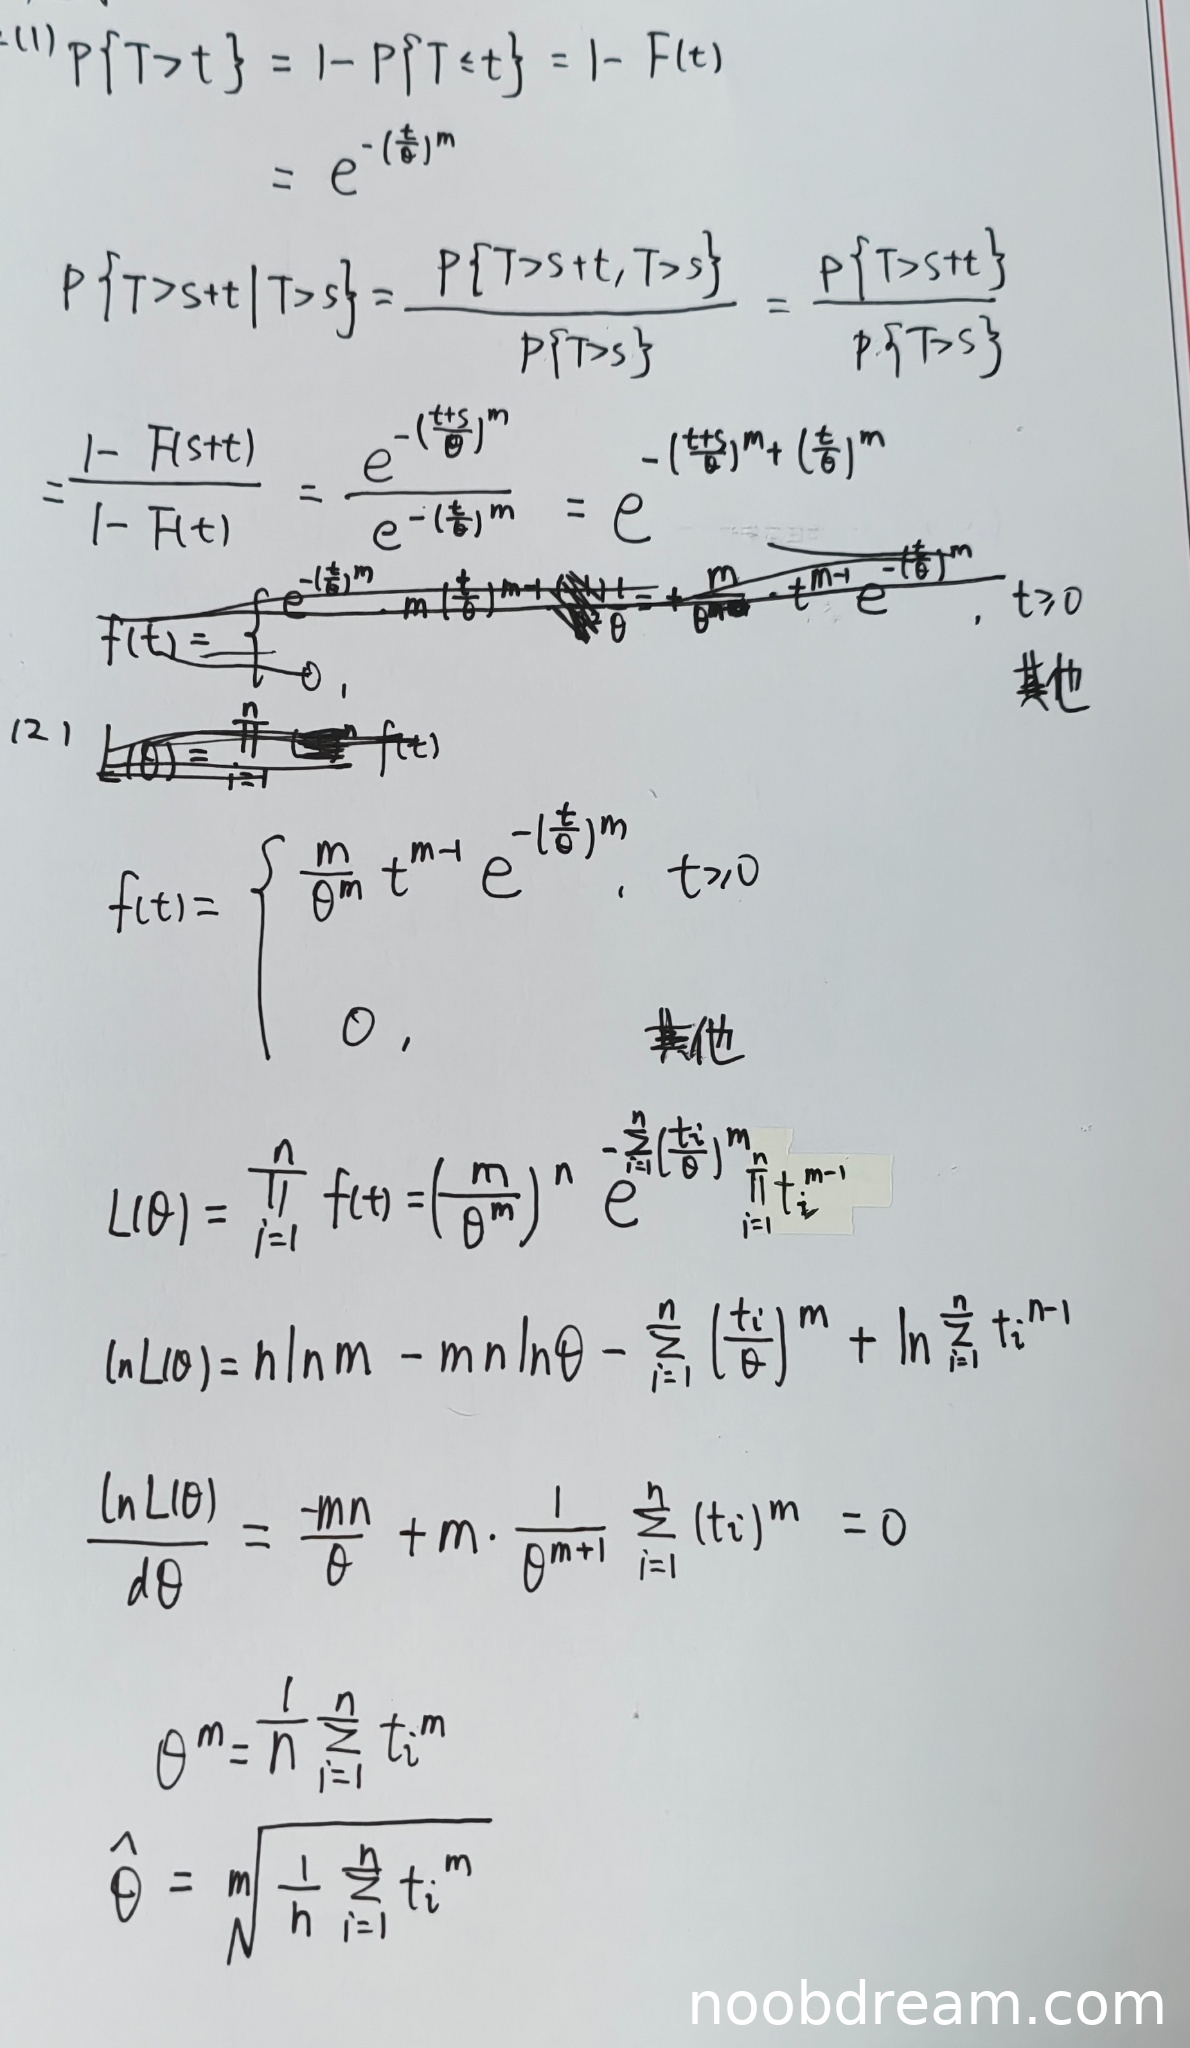 (1) P{T>t} = 1- P{T≤t} = 1- F(t)
= e^{-(t/θ)^m}
P{T>s+t|T>s} = P{T>s+t, T>s} / P{T>s} = P{T>s+t} / P{T>s}
= (1- F(s+t)) / (1- F(t)) = e^{-((t+s)/θ)^m} / e^{-(t/θ)^m} = e^{-((t+s)/θ)^m + (t/θ)^m}
f(t) = { e^{-(t/θ)^m} · m (t/θ)^{m-1} 1/θ = + m/θ^m · t^{m-1} e^{-(t/θ)^m} , t≥0
0 , 其他
(2) L(θ) = ∏_{i=1}^{n} f(t)
f(t) = { m/θ^m t^{m-1} e^{-(t/θ)^m} , t≥0
0 , 其他
L(θ) = ∏_{i=1}^{n} f(t) = (m/θ^m)^n e^{-∑_{i=1}^{n} (t_i/θ)^m} ∏_{i=1}^{n} t_i^{m-1}
lnL(θ) = n ln m - mn lnθ - ∑_{i=1}^{n} (t_i/θ)^m + ln ∑_{i=1}^{n} t_i^{n-1}
lnL(θ) / dθ = -mn/θ + m · 1/θ^{m+1} ∑_{i=1}^{n} (t_i)^m = 0
θ^m = 1/n ∑_{i=1}^{n} t_i^m
θ̂ = ᵐ√(1/n ∑_{i=1}^{n} t_i^m)
noobdream.com